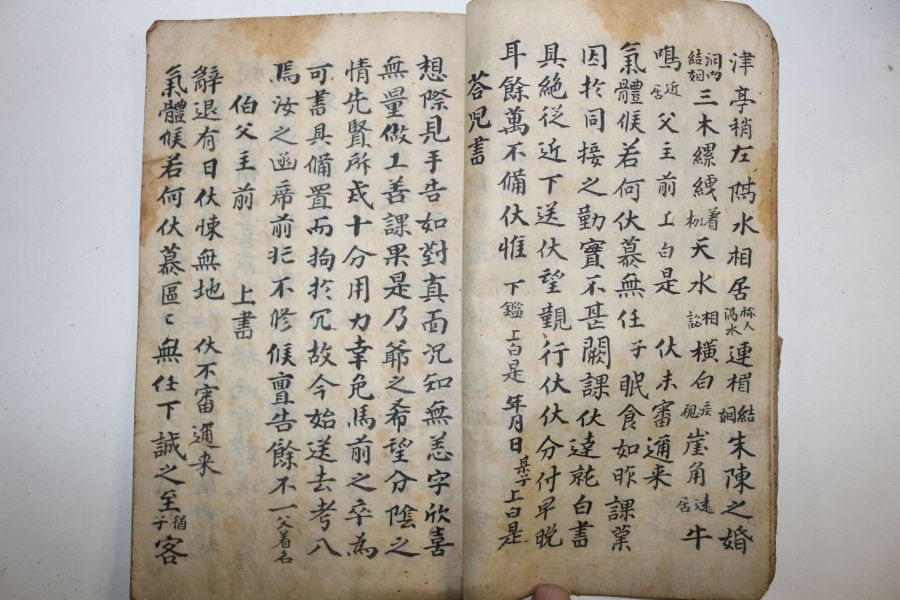 津亭稍左隣水相居 隣人渴水 連楣 結姻 朱陳之婚
洞內結姻 三木縲絏 著枷 天水 相訟 橫白 疾視 崖角 遠居 牛
鳴 近居 父主前上白是 伏未審邇来
氣體候若何伏慕無任 子 眠食如昨課業
因於同接之勤實不甚闕課伏達就白書
具絶從近下送伏望覲行伏伏分付早晩
耳餘萬不備伏惟 下鑑 上白是 年月日 某子 上白是
答児書
想際見手告如對真面况知無恙字欣喜
無量做工善課果是乃爺之希望分陰之
情先賢所戒十分用力幸免馬前之卒為
可書具備置而拘於冗故今始送去考入
焉汝之函席前非不修候亶告餘不一 父着名
伯父主前 上書
辭退有日伏悚無地 伏不審邇来
氣體候若何伏慕區〻無任下誠之至 猶子 客